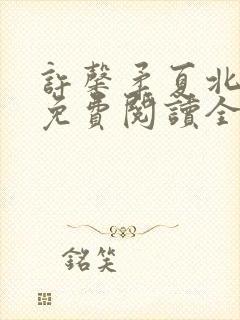 許馨矛夏北
免費閱讀全
銘笑